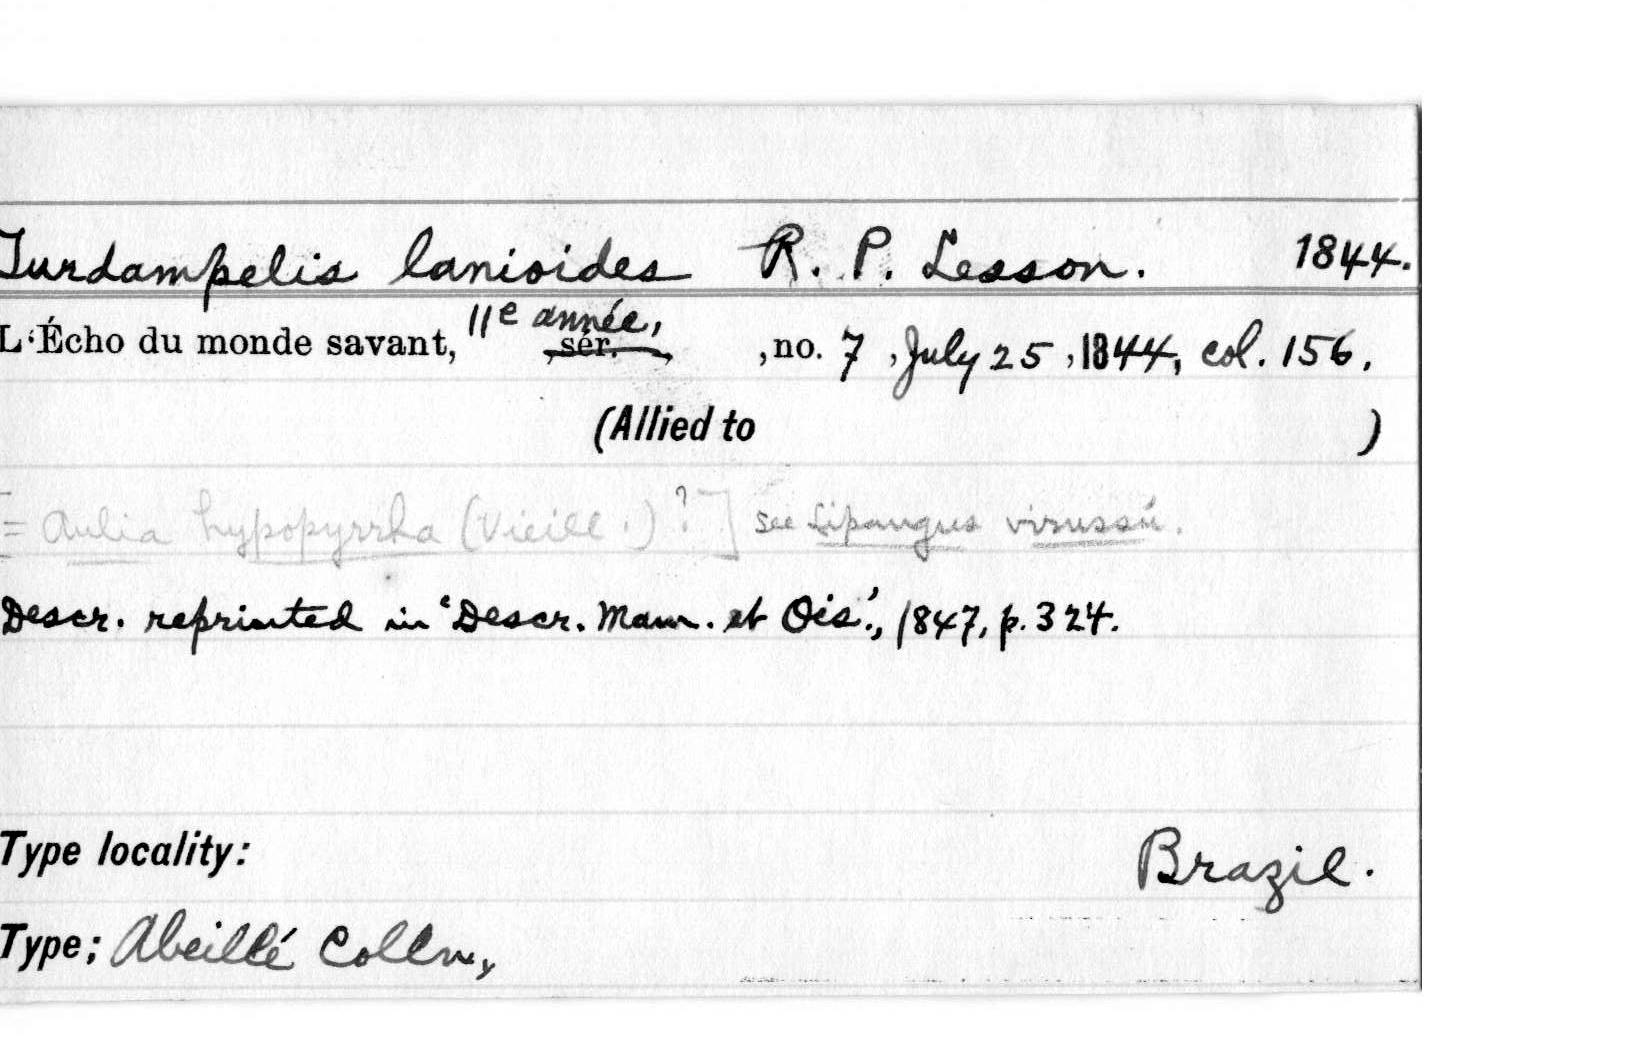 Turdampelis lanioides R. P. Lesson. 1844.
L'Écho du monde savant, 11e année, sér. , no. 7, July 25, 1844, col. 156.
(Allied to )
= Aulia hypopyrrha (Vieill.)?] see Lipaugus virussú.
Descr. reprinted in 'Descr. Mam. et Ois.', 1847, p. 324.
Type locality: Brazil.
Type; Abeillé Colln,